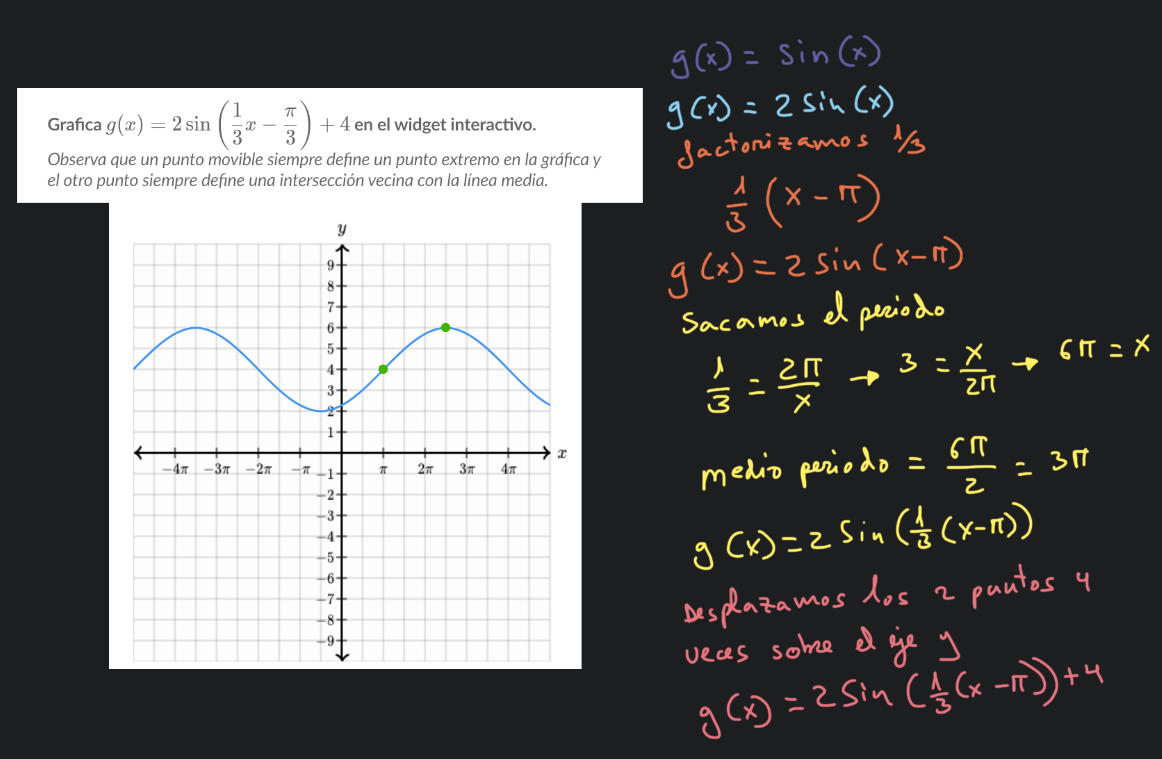 Grafica g(x) = 2 sin (1/3 x − π/3) + 4 en el widget interactivo.
Observa que un punto movible siempre define un punto extremo en la gráfica y
el otro punto siempre define una intersección vecina con la línea media.
y
9
8
7
6
5
4
3
2
1
−4π −3π −2π −π π 2π 3π 4π x
−1
−2
−3
−4
−5
−6
−7
−8
−9
g(x) = sin(x)
g(x) = 2 sin(x)
factorizamos 1/3
1/3 (x − π)
g(x) = 2 sin(x−π)
Sacamos el periodo
1/3 = 2π/x → 3 = x/2π → 6π = x
medio periodo = 6π/2 = 3π
g(x) = 2 sin(1/3(x−π))
Desplazamos los 2 puntos 4
veces sobre el eje y
g(x) = 2 sin(1/3(x−π))+4